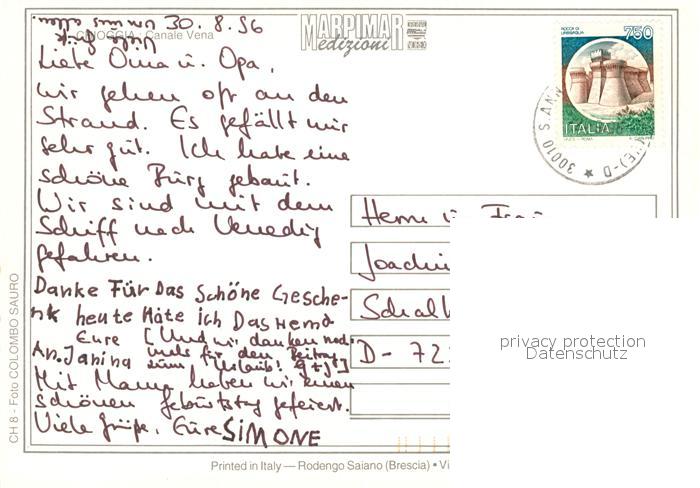 30.8.96
CHIOGGIA: Canale Vena
MARPIMAR
edizioni
Viele Grüße von uns allen
Liebe Oma u. Opa,
wir gehen oft an den
Strand. Es gefällt mir
sehr gut. Ich habe eine
schöne Burg gebaut.
Wir sind mit dem
Schiff nach Venedig
gefahren.
Danke Für Das schöne Gesche-
nk heute Hate ich Das Hemd
An. Eure Janina [Und wir danken noch-
mals für den Beitrag
zum Urlaub!
Mit Mama haben wir einen
schönen Geburtstag gefeiert.
Viele Grüße, Eure SIMONE
750
ROCCA DI
URBISAGLIA
ITALIA
30010 S. ANN
(VE)-D
Herrn u. Frau
Joachi
Schal
D-72
privacy protection
Datenschutz
CH 8 - Foto COLOMBO SAURO
Printed in Italy — Rodengo Saiano (Brescia) • Vi